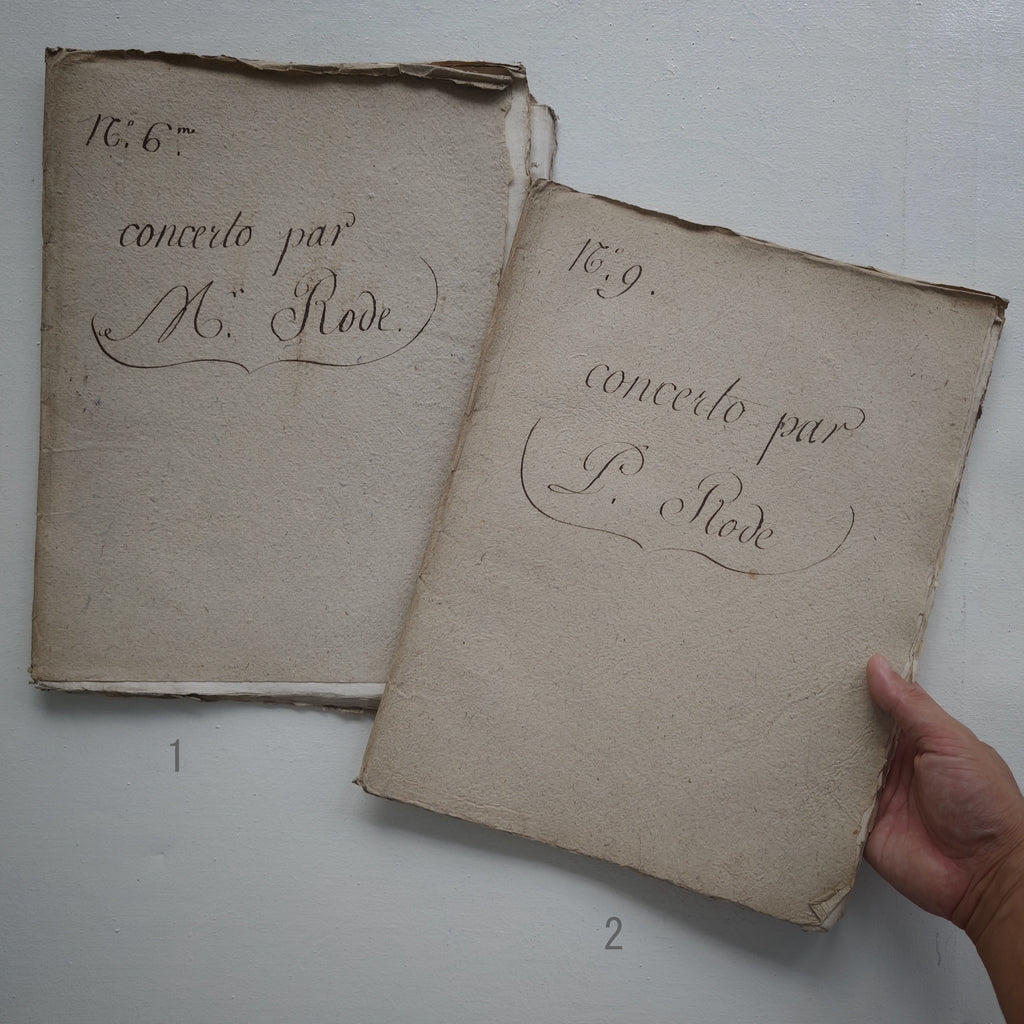 N.º 6.me
concerto par
M.r Rode.
1
N.º 9.
concerto par
P. Rode
2